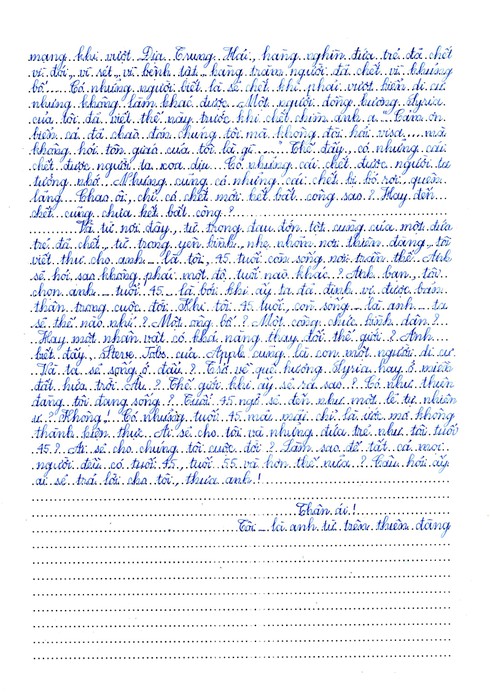 mạng khi vượt Địa Trung Hải, hàng nghìn đứa trẻ đã chết
vì đói, vì rét, vì bệnh tật, hàng trăm người đã chết vì khủng
bố... Có những người biết là sẽ chết khi phải vượt biển di cư
nhưng không làm khác được. Một người đồng hương Syria
của tôi đã viết thế này trước khi chết chìm anh ạ: "Cảm ơn
biển cả đã chào đón chúng tôi mà không đòi hỏi visa, mà
không hỏi tôn giáo của tôi là gì...". Thế đấy, có những cái
chết được người ta xoa dịu. Có những cái chết được người ta
tưởng nhớ. Nhưng cũng có những cái chết bị bỏ rơi, quên
lãng. Chao ôi, chỉ có chết mới hết bất công sao? Hay đến
chết cũng chưa hết bất công?
Và từ nơi đây, từ trong đau đớn tột cùng của một đứa
trẻ đã chết, từ trong yên bình, nhẹ nhõm nơi thiên đàng, tôi
viết thư cho anh - là tôi, 45 tuổi còn sống nơi trần thế. Anh
sẽ hỏi sao không phải một độ tuổi nào khác? Anh bạn, tôi
chọn anh - tuổi 45 - là bởi khi ấy ta đã định vị được bản
thân trong cuộc đời. Khi tôi 45 tuổi, còn sống - là anh - ta
sẽ thế nào nhỉ? Một ông bố? Một công chức bình dân?
Hay một nhân vật có khả năng thay đổi thế giới? Anh
biết đấy, Steve Jobs của Apple cũng là con một người di cư.
Và ta sẽ sống ở đâu? Trở về quê hương Syria hay ở miền
đất hứa trời Âu? Thế giới khi ấy sẽ ra sao? Có như thiên
đàng tôi đang sống? Tuổi 45 ngỡ sẽ đến như một lẽ tự nhiên
ư? Không! Có những tuổi 45 mãi mãi chỉ là ước mơ không
thành hiện thực. Ai sẽ cho tôi và những đứa trẻ như tôi tuổi
45? Ai sẽ cho chúng tôi cuộc đời? Làm sao để tất cả mọi
người đều có tuổi 45, tuổi 55 và hơn thế nữa? Câu hỏi ấy
ai sẽ trả lời cho tôi, thưa anh!
Thân ái!
Tôi - là anh từ trên thiên đàng